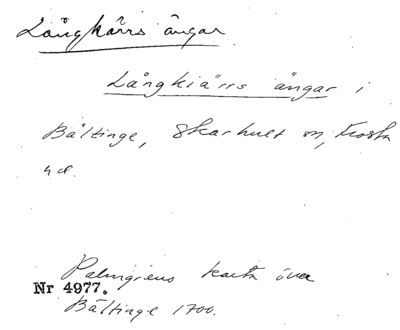 Långkärrs ängar
Långkiärrs ängar i
Bältinge, Skarhult sn, Frosta
hd.
Palmgrens karta över
Nr 4977.
Bältinge 1700.